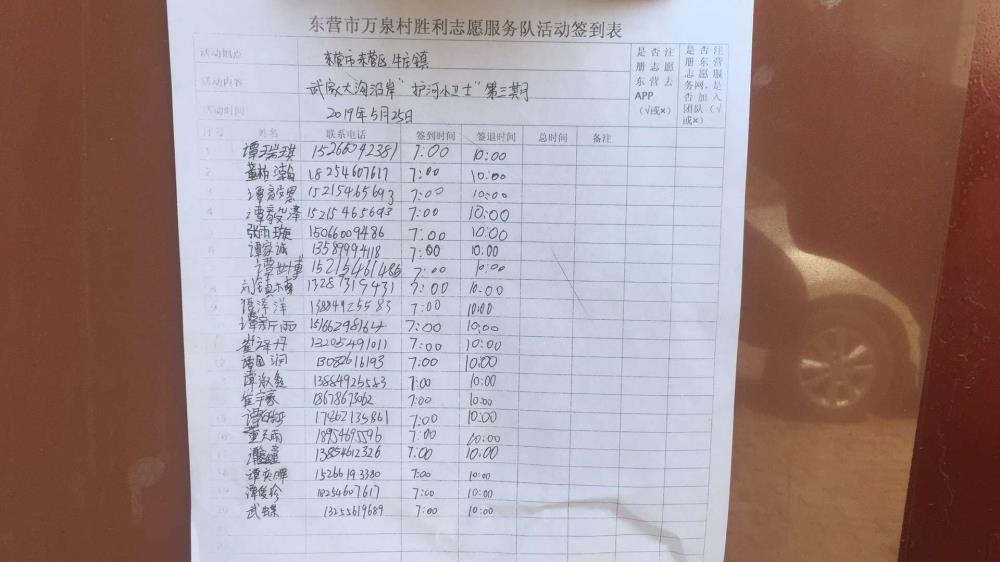 东营市万泉村胜利志愿服务队活动签到表
活动地点 东营市东营区牛庄镇
活动内容 武家大沟沿岸"护河小卫士"第三期
活动时间 2019年5月25日
是否注册志愿东营去APP(√或×)
是否注册东营志愿服务网,是否加入团队(√或×)
序号 姓名 联系电话 签到时间 签退时间 总时间 备注
1 谭瑞琪 15266042381 7:00 10:00
2 董柏瀚 18254607617 7:00 10:00
3 15215465693 7:00 10:00
4 谭毅泽 15215465693 7:00 10:00
5 张雨璇 15066009486 7:00 10:00
谭家诚 13589994118 7:00 10:00
谭世博 15215461485 7:00 10:00
8 刘镇楠 13287319431 7:00 10:00
9 泽洋 13884925583 7:00 10:00
谭新雨 15166298164 7:00 10:00
崔梓丹 13205491011 7:00 10:00
12 润 13082616193 7:00 10:00
谭淑鑫 13884925583 7:00 10:00
崔宇豪 18678673062 7:00 10:00
谭 17862135861 7:00 10:00
董天雨 18954695596 7:00 10:00
13854612326 7:00 10:00
谭奕晖 15266193380 7:00 10:00
谭俊珍 18254607617 7:00 10:00
武蝶 13255619689 7:00 10:00